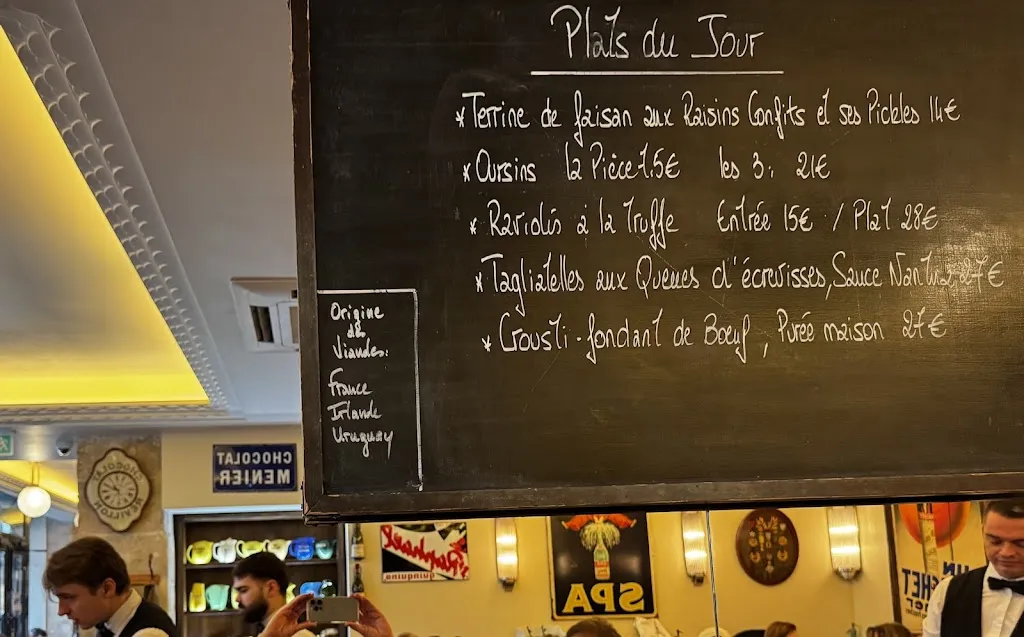 Plats du Jour
* Terrine de faisan aux Raisins Confits et ses Pickles 14€
* Oursins la Pièce 7.5€ les 3: 21€
* Raviolis à la Truffe Entrée 15€ / Plat 28€
* Tagliatelles aux Queues d'écrevisses, Sauce Nantua 27€
* Crousti-fondant de Boeuf, Purée maison 27€
Origine
de
Viandes:
France
Irlande
Uruguay
CHOCOLAT
MENIER
CHOCOLAT
Raphaël
quinquina
SPA
UN